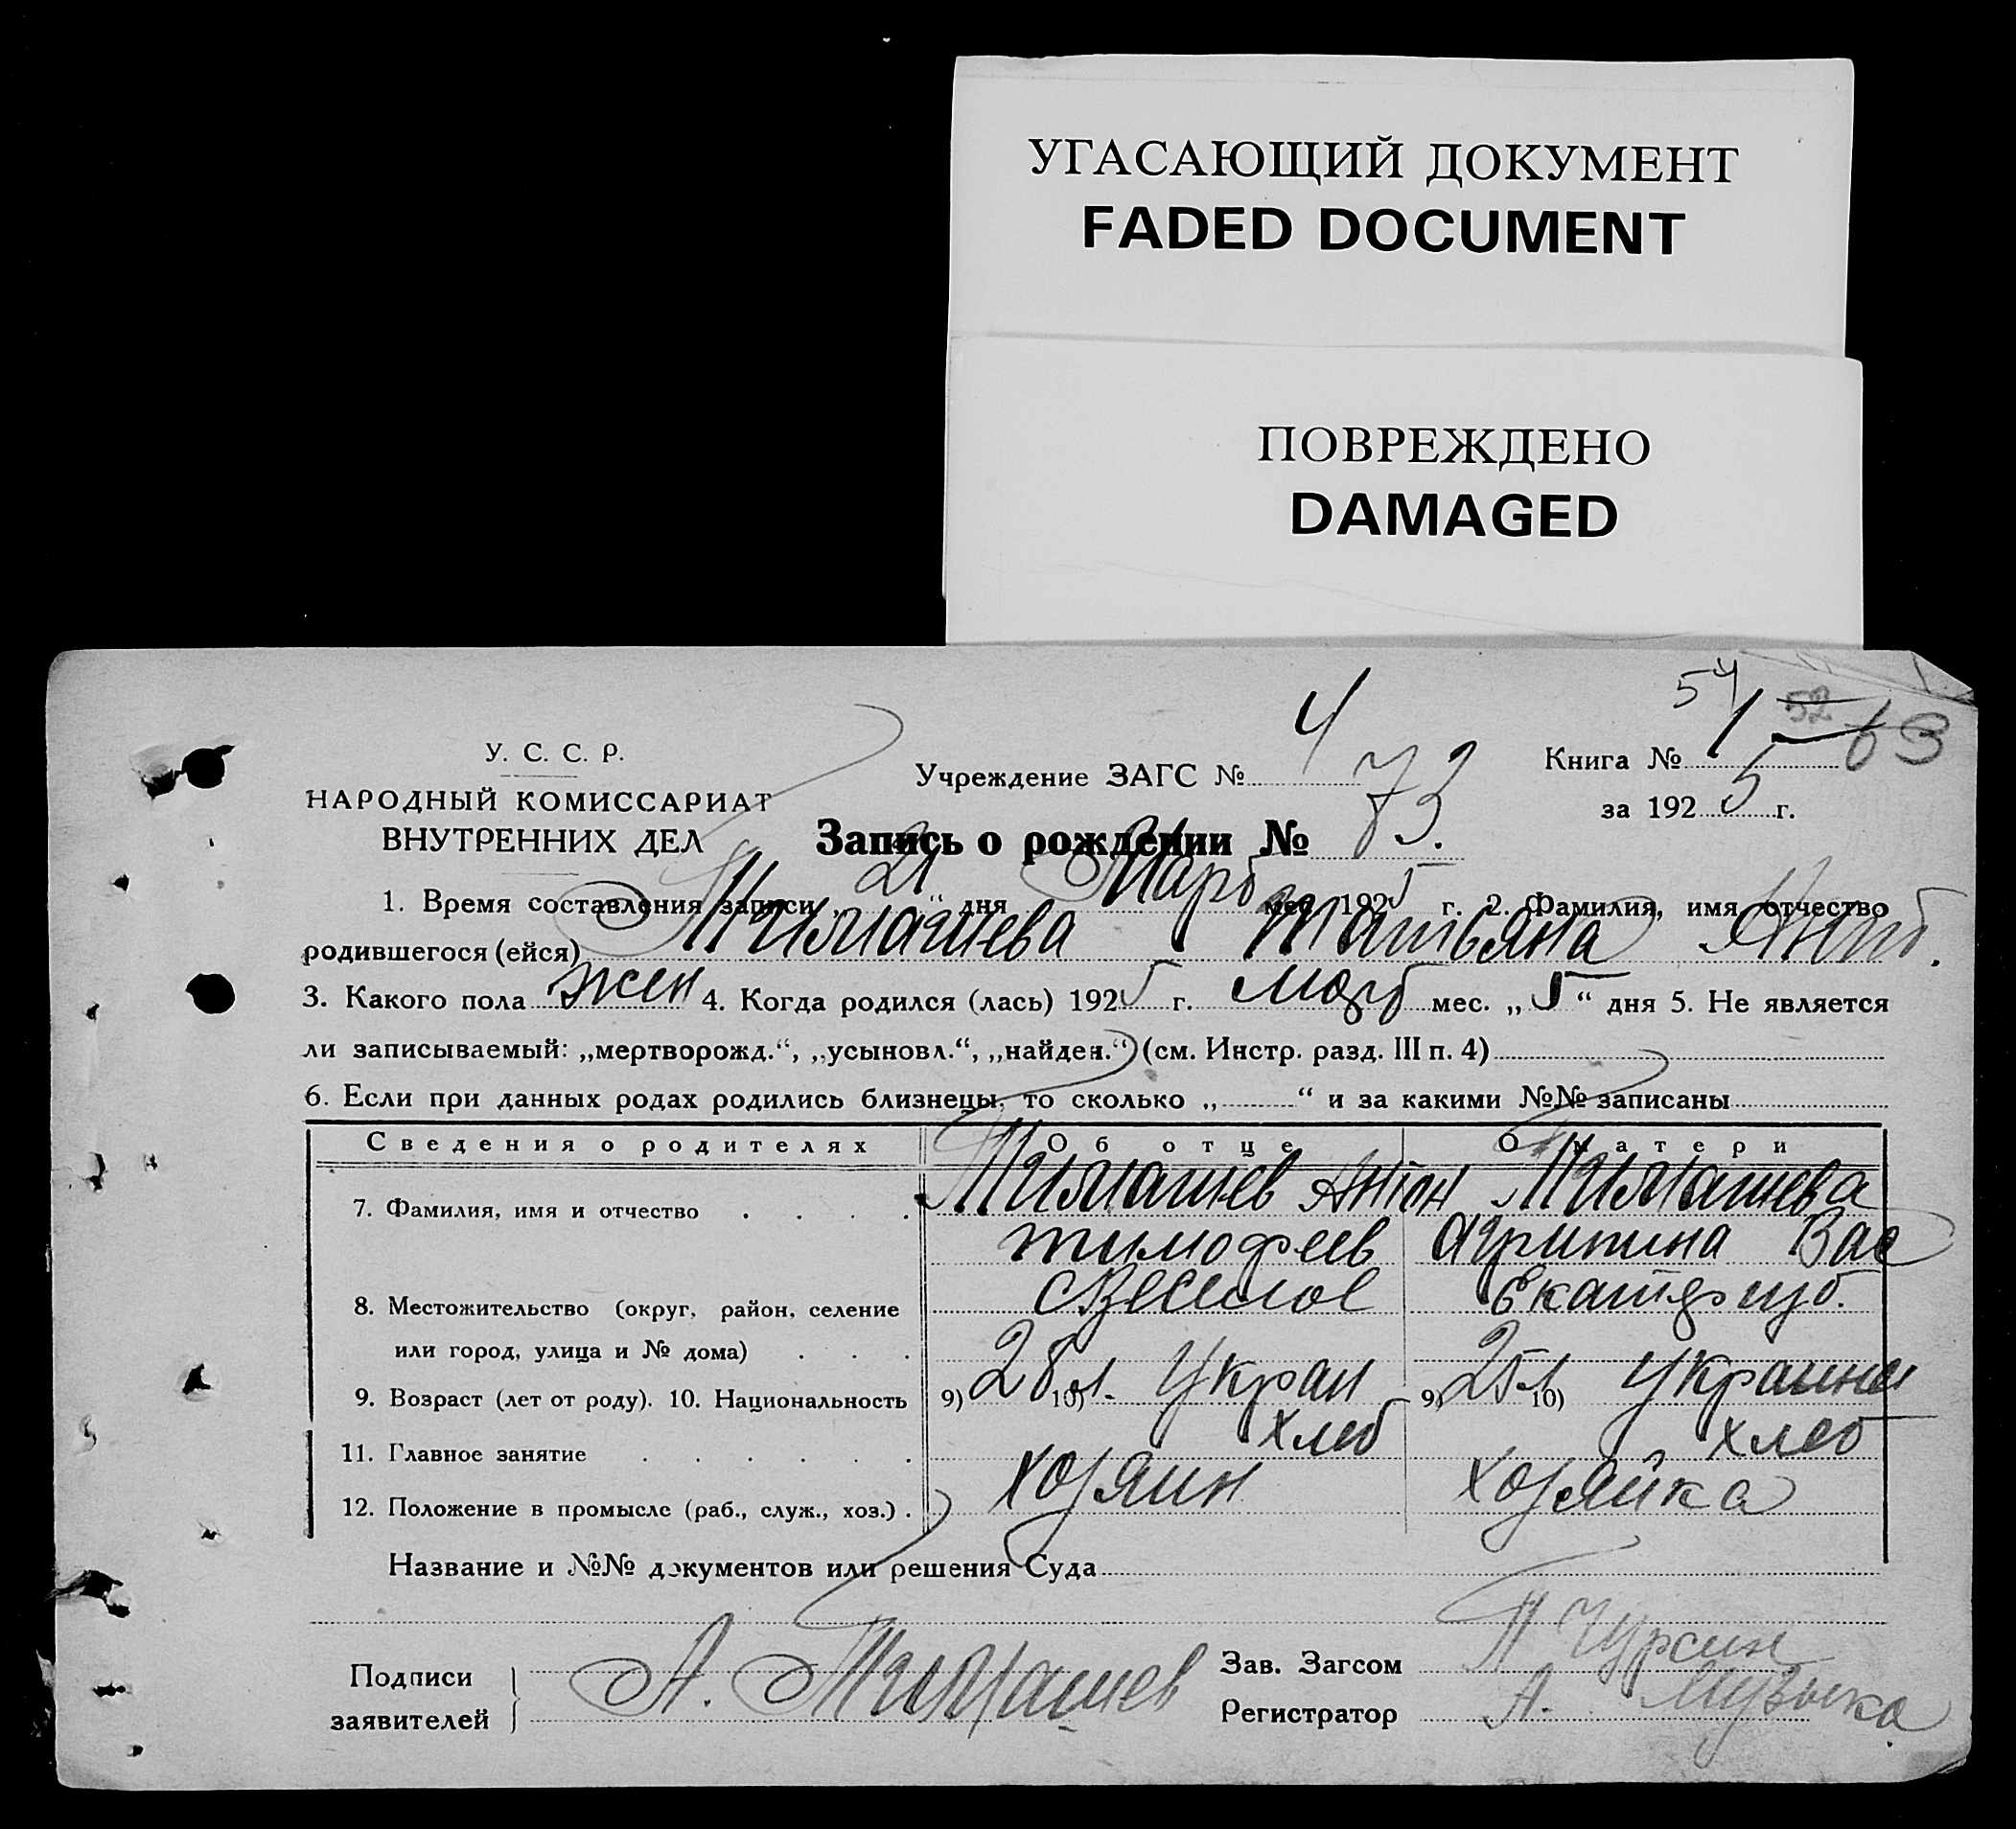 УГАСАЮЩИЙ ДОКУМЕНТ
FADED DOCUMENT
ПОВРЕЖДЕНО
DAMAGED
54 52 63
У. С. С. Р.
НАРОДНЫЙ КОМИССАРИАТ
ВНУТРЕННИХ ДЕЛ
Учреждение ЗАГС № 4
Книга № 1
за 1925 г.
Запись о рождении № 73.
1. Время составления записи „21“ дня Марб мес. 1925 г. 2. Фамилия, имя отчество
родившегося (ейся) Тимашева Татьяна Ант.
3. Какого пола жен 4. Когда родился (лась) 1925 г. марб мес. „5“ дня 5. Не является
ли записываемый: „мертворожд.“, „усыновл.“, „найден.“ (см. Инстр. разд. III п. 4)
6. Если при данных родах родились близнецы, то сколько „ “ и за какими №№ записаны
Сведения о родителях Об отце О матери
7. Фамилия, имя и отчество Тимашев Антон Тимашева
тимофеев Агрипина Вас
8. Местожительство (округ, район, селение с Веселое
или город, улица и № дома)
9. Возраст (лет от роду). 10. Национальность 9) 28 л. 10) Украи 9) 25 л 10) Украинк
хлеб хлеб
11. Главное занятие
12. Положение в промысле (раб., служ., хоз.) хозяин хозяйка
Название и №№ документов или решения Суда
Подписи
заявителей
А. Тимашев
Зав. Загсом
Регистратор А. Музыка